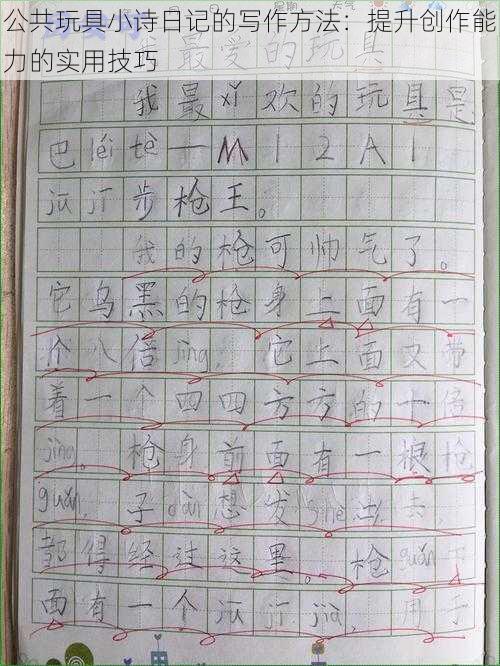 公共玩具小诗日记的写作方法：提升创作能
力的实用技巧
我最爱的玩具
我最xǐ欢的玩具是
巴léi tè一M12A1
jū jī步枪王。
我的枪可帅气了。
它乌黑的枪身上面有一
个八倍jìng，它上面又带
着一个四四方方的十倍
jìng。枪身前面有一根枪
guǎn，子dàn想发shè出去，
都得经过这里。枪guǎn下
面有一个jū jī jià，用于